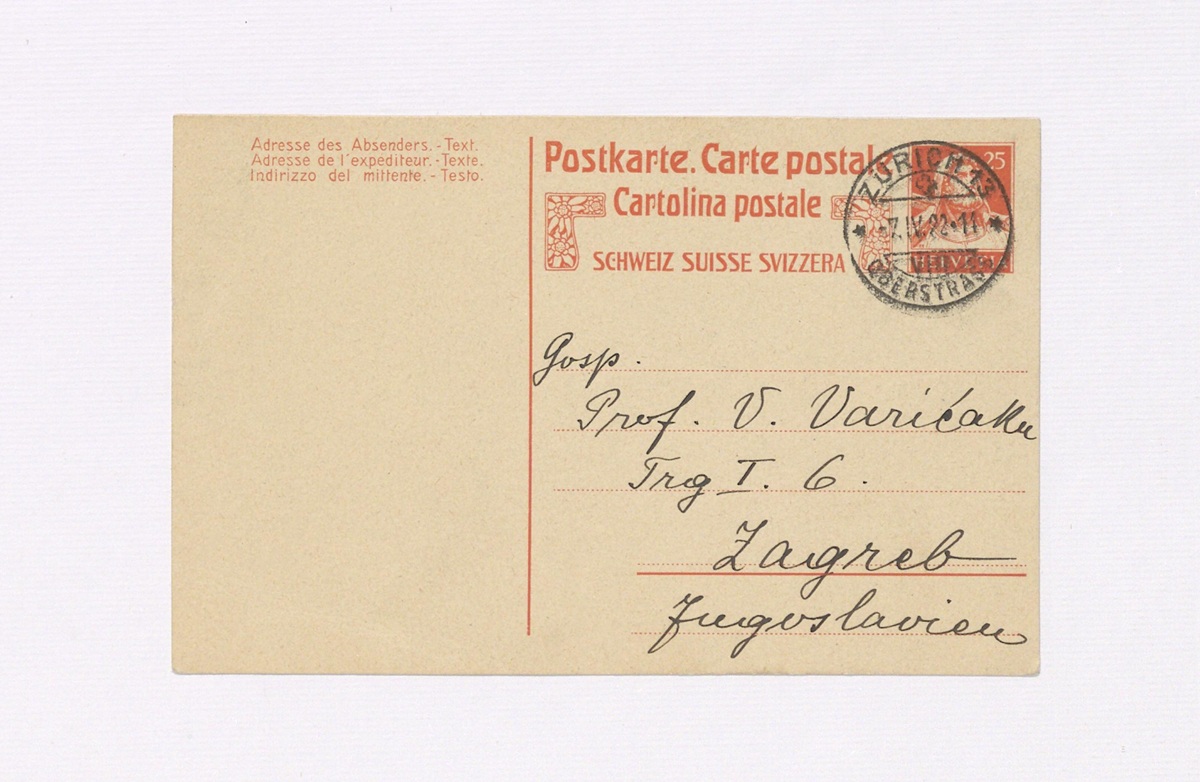 Adresse des Absenders. - Text.
Adresse de l'expéditeur. - Texte.
Indirizzo del mittente. - Testo.
Postkarte. Carte postale
Cartolina postale
SCHWEIZ SUISSE SVIZZERA
25
HELVETIA
ZÜRICH 13
-7.IV.22-11
OBERSTRASS
Gosp.
Prof. V. Varićaku
Trg I. 6.
Zagreb
Jugoslavien